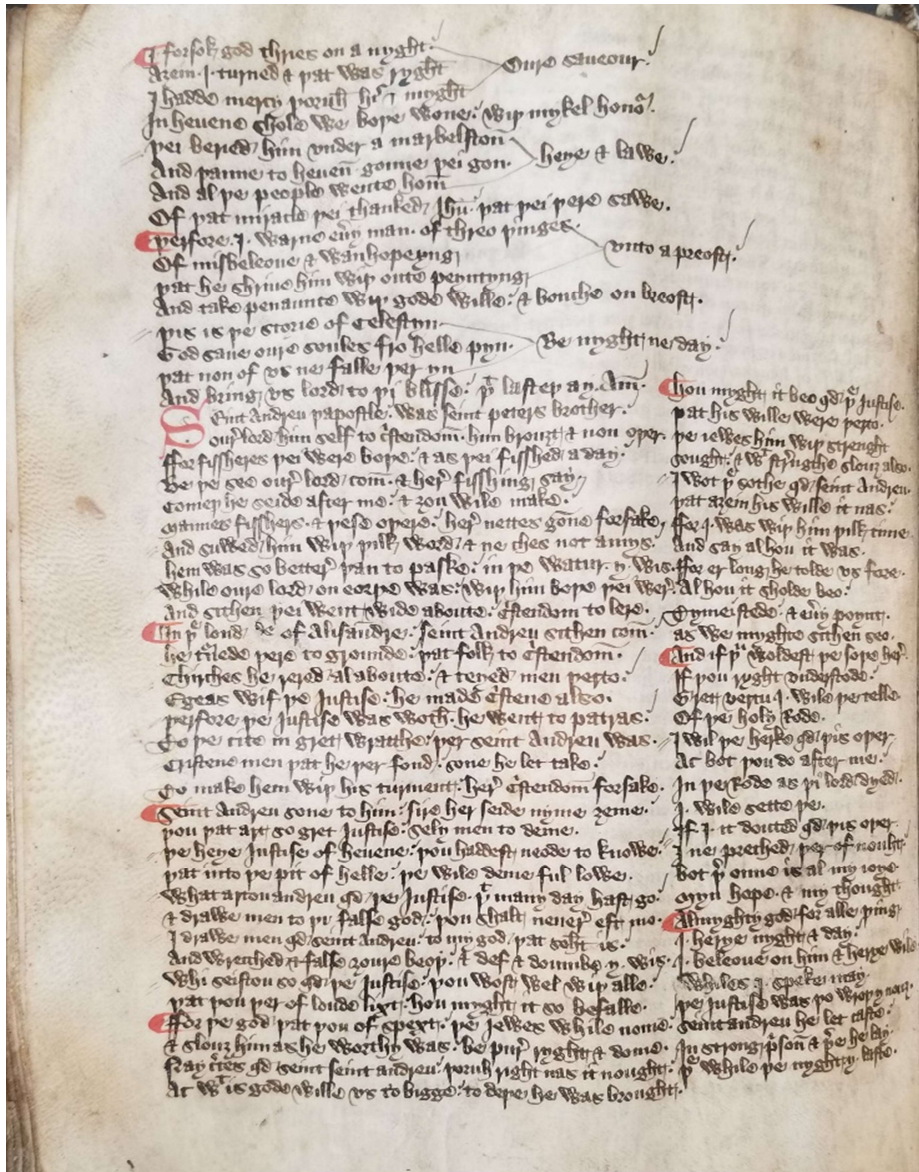 I forsok god thries on a nyght.
Aȝein I turned & þat was ryght
Oure saueour.
I hadde mercy þoruh his myght
In heuene shole we boþe wone: wiþ mykel honor.
þei beried him vnder a marbelston
And þanne to heuen gonne þei gon.
heye & lawe.
And al þe people wente hom
Of þat miracle þei thanked Ihu. þat þei þere sawe.
þerfore I. warne eu'y man. of threo þinges.
Of misbeleoue & wanhopeyng
vnto a preost.
þat he shriue him wiþ oute peyntyng
And take penaunce wiþ gode wille: & bonche on breost.
þis is þe storie of Celestyn
God saue oure soules fro helle pyn.
Be nyght ne day.
þat non of vs ne falle þer yn
And bring vs lord to þi blisse: þt lasteþ ay. Am.
Seint Andreu þapostle. was seint peters brother.
oure lord him self to cstendom. him brouȝt & non oþer.
ffor fissheres þei were boþe: & as þei fisshed a day.
Be þe see oure lord com: & her fisshing say.
Comeþ he seide after me: & ȝou wile make.
Mannes fisshers. & þese oþere. her nettes gone forsake,
And suwed him wiþ þilk word. & ne ches not amys.
hem was so better þan to paske: in þe watur. y. wis.
While oure lord on eorþe was: wiþ him boþe þei wer.
And sithen þei went wide aboute. cstendom to lere.
In þe lond of Alisandre. seint Andreu sithen com.
he tornede þere to grounde: þat folk to cstendom.
Chirches he rered al aboute: & teyed men þerto.
Egeas wif þe Justise: he made cstene also.
þerfore þe Justise was woth. he went to patras.
To þe cite in gret wratthe: þer seint Andreu was.
Cristene men þat he þer fond. sone he let take.
To make hem wiþ his turment: her cstendom forsake.
Seint Andreu sone to him: sire her seide nyme ȝeme.
þou þat art so gret Justise: sely men to deme.
þe heye Justise of heuene: þou haddest neode to knowe.
þat into þe pit of helle: þe wile deme ful lowe.
What artou andreu qd þe Justise. þt many day hast go.
& drawe men to þi false god: þou shalt neuer eft mo.
I drawe men qd seint Andreu: to my god þat soht is.
And wreched & false ȝoure beoþ: & def & doumbe y. wis.
Whi seistou so qd þe Justise: þou wost wel wiþ alle.
þat þou þer of loude lixt: hou myght it so befalle.
ffor þe god þat þou of spext: þe Jewes while nome.
& slouȝ him as he worthy was: be pur ryght & dome.
Nay ctes qd seint andreu: þoruh right nas it nought.
Ac wt is gode wille vs to bigge: to deþe he was brought.
Hou myght it beo qd þe Justise.
þat his wille were þerto.
þe iewes him wiþ strenght
sought: & wt strengthe slouȝ also.
I wot þe sothe qd seint Andreu.
þat aȝein his wille it nas.
ffor I. was wiþ him þilk time
And say al hou it was.
ffor er long he tolde vs fore.
Al hou it sholde beo.
Tyme & stede. & eu'y poynt.
as we myghte sithen seo.
And if þu woldest þe soþe her
If þou ryght vnderstode.
Gret vertu I. wile þe telle
Of þe holy Rode.
I wil þe herke qd þis oþer
Ac bot þou do after me.
In þe Rode as þi lord dyed.
I. wile sette þe.
If I. it douted qd þis oþer
I ne preched þer of nouht.
Bot þe onne is al my ioye
Myn hope. & my thought
Almyghty god for alle þing
I. herye nyght & day.
I. beleoue on him & herye wile
Whiles I. speke may.
þe Justise was þo wroþ ynow.
seint andreu he let caste.
In strong p'son & þere he lay
þe while þe nyght y. laste.